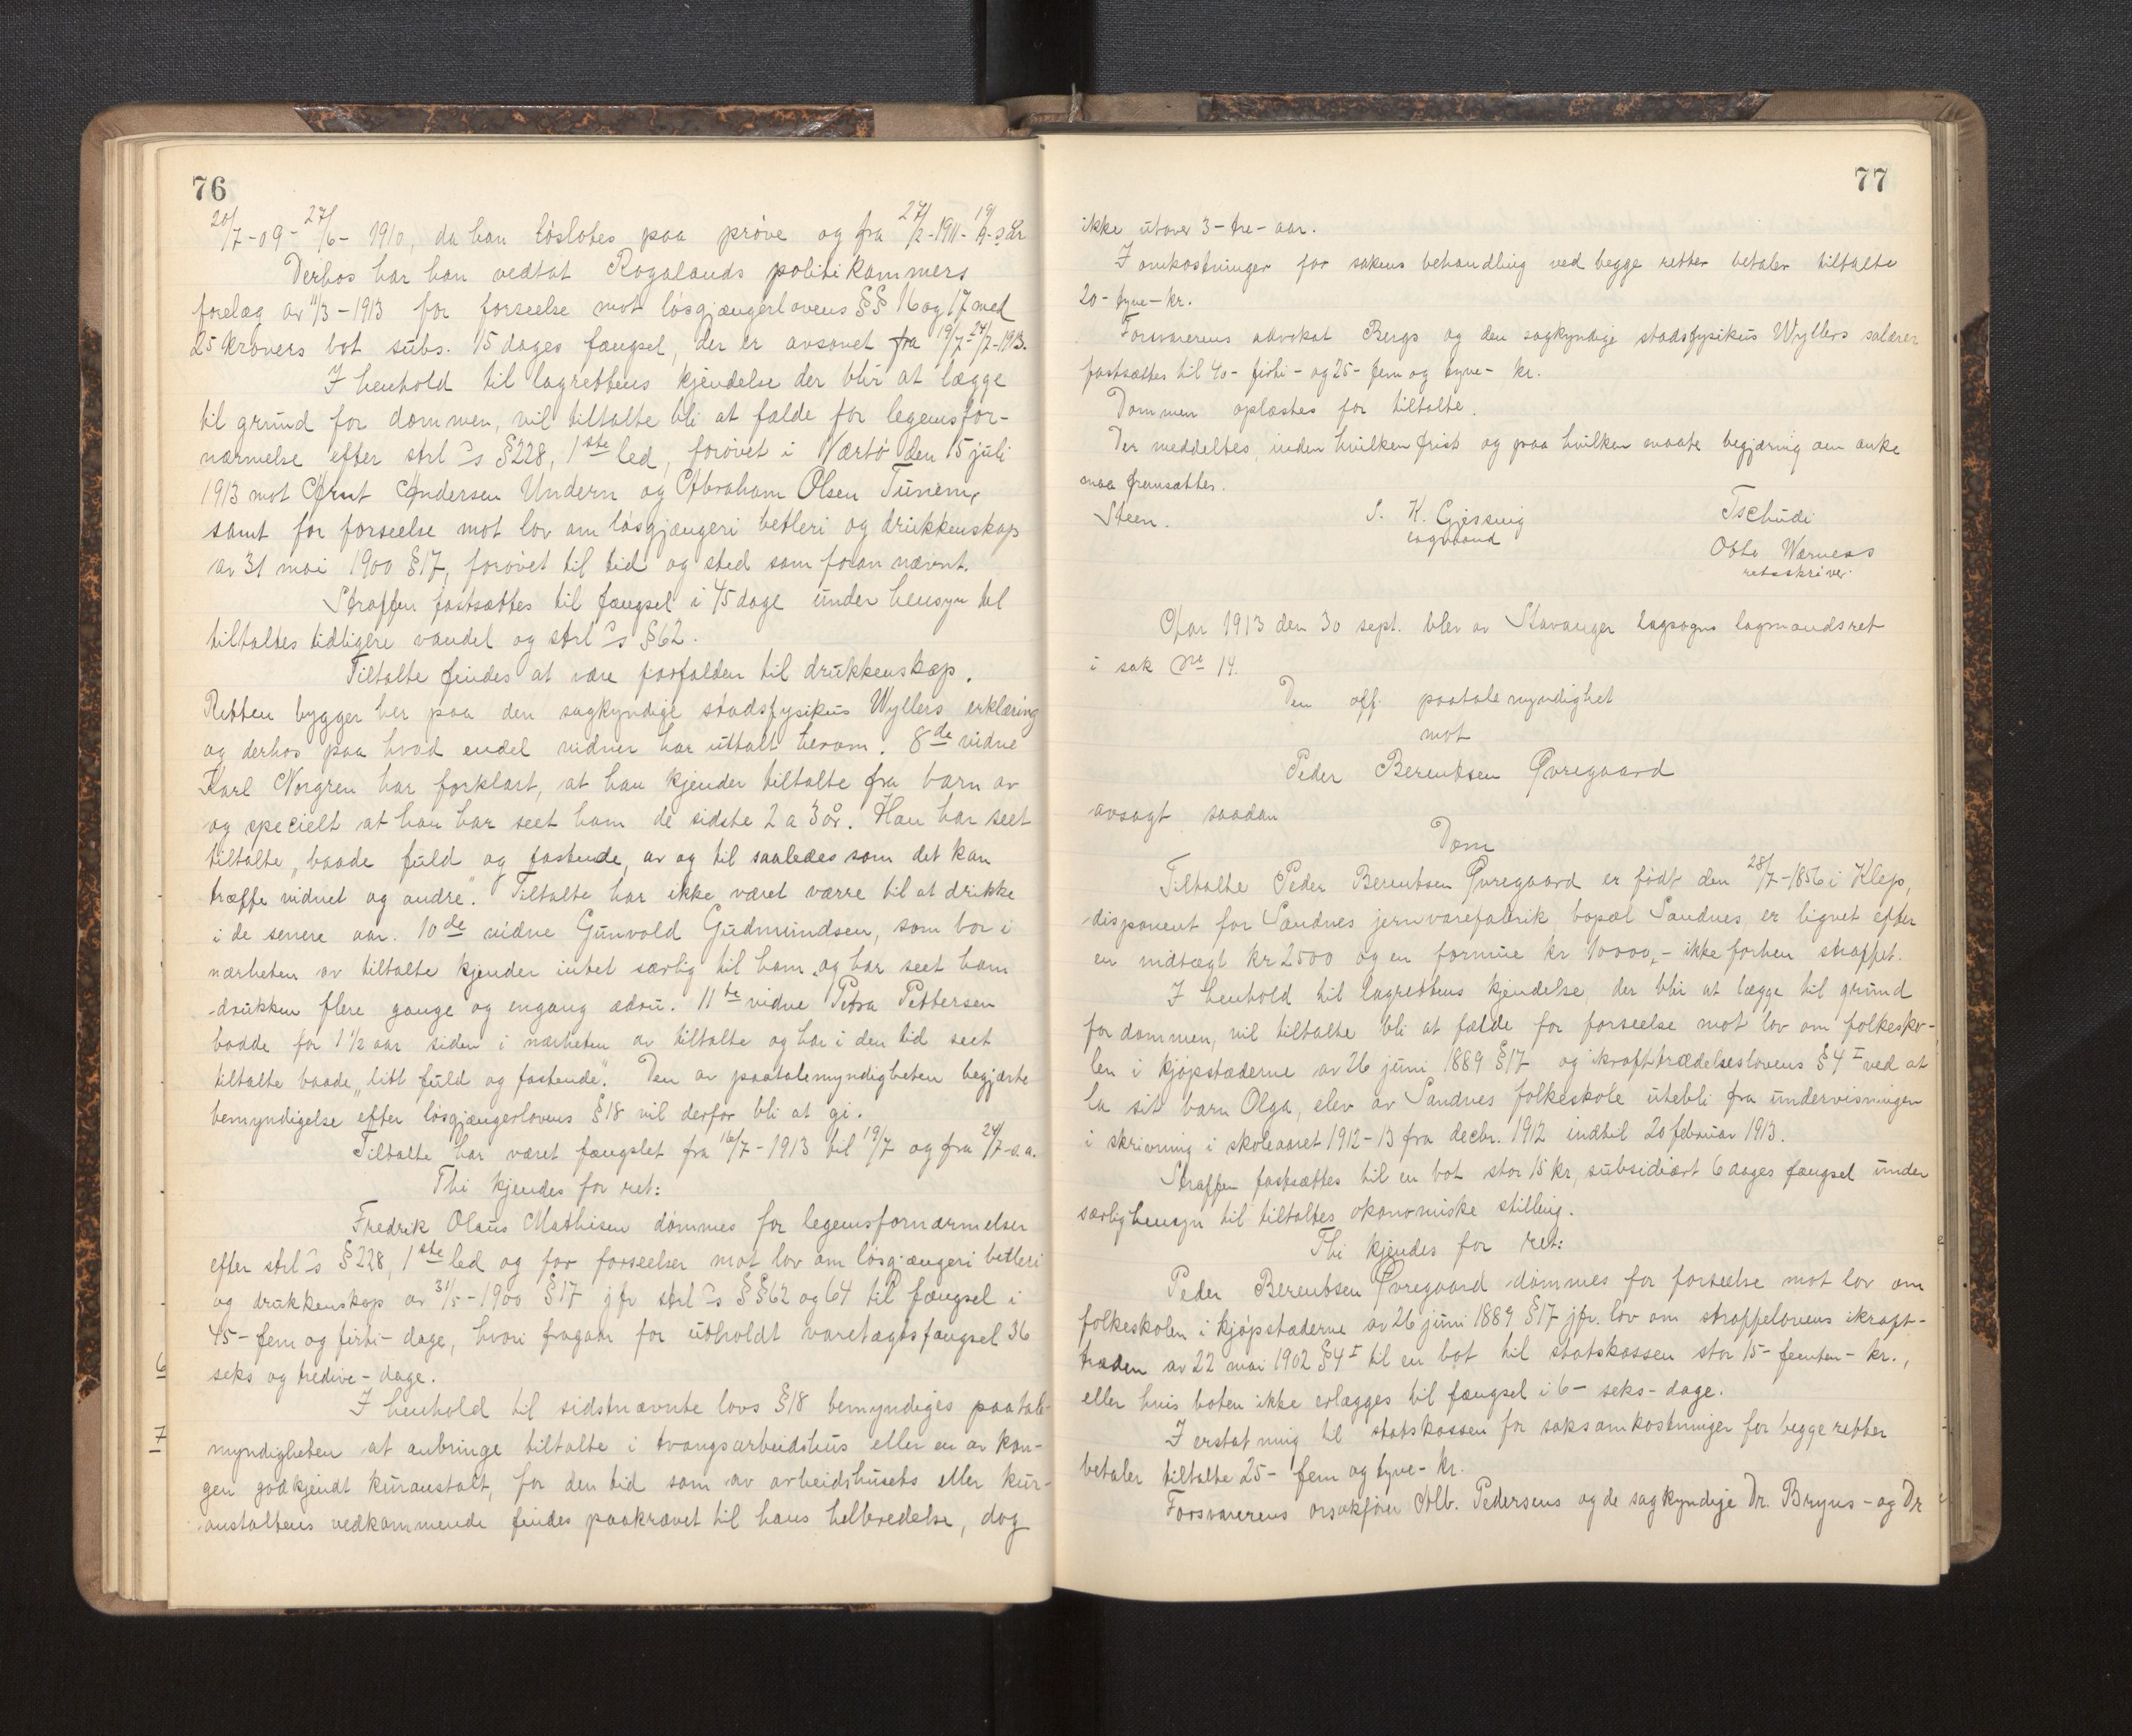 76
20/7-09- 27/6- 1910, da han løslates paa prøve og fra 27/2-1911- 19/9- s år
Derhos har han vedtat Rogalands politikammers
forelæg av 11/3-1913 for forseelse mot løsgjængerlovens §§ 16 og 17 med
25 kroners bot subs. 15 dages fængsel, der er avsonet fra 19/7-24/7-1913.
I henhold til lagrettens kjendelse der blir at lægge
til grund for dommen, vil tiltalte bli at fælde for legemsfor-
nærmelse efter strl s §228, 1ste led, forøvet i Værtø den 15 juli
1913 mot Arnt Andersen Undern og Abraham Olsen Tunem,
samt for forseelse mot lov om løsgjængeri betleri og drukkenskap
av 31 mai 1900 §17, forøvet til tid og sted som foran nævnt.
Straffen fastsættes til fængsel i 45 dage under hensyn til
tiltaltes tidligere vandel og strl s §62.
Tiltalte findes at være forfalden til drukkenskap.
Retten bygger her paa den sagkyndige stadsfysikus Wyllers erklæring
og derhos paa hvad endel vidner har uttalt herom. 8de vidne
Karl Norgren har forklart, at han kjender tiltalte fra barn av
og specielt at han har seet ham de sidste 2 a 3 år. Han har seet
tiltalte „baade fuld og fastende, av og til saaledes som det kan
træffe vidnet og andre." Tiltalte har ikke været værre til at drikke
i de senere aar. 10de vidne Gunvald Gudmundsen, som bor i
nærheten av tiltalte kjender intet særlig til ham, og har seet ham
drukken flere gange og engang ædru. 11te vidne Petra Pettersen
bodde for 1½ aar siden i nærheten av tiltalte og har i den tid seet
tiltalte baade „litt fuld og fastende". Den av paatalemyndigheten begjærte
bemyndigelse efter løsgjængerlovens §18 vil derfor bli at gi.
Tiltalte har været fængslet fra 16/7-1913 til 19/7 og fra 24/7-s.a.
Thi kjendes for ret:
Fredrik Olaus Mathisen dømmes for legemsfornærmelser
efter strl s §228, 1ste led og for forseelser mot lov om løsgjængeri betleri
og drukkenskap av 31/5-1900 §17 jfr strl s §§62 og 64 til fængsel i
45- fem og firti- dage, hvori fragaar for utholdt varetægtsfængsel 36
seks og tredive- dage.
I henhold til sidstnævnte lovs §18 bemyndiges paatale-
myndigheten at anbringe tiltalte i tvangsarbeidshus eller en av kon-
gen godkjendt kuranstalt, for den tid som av arbeidshusets eller kur-
anstaltens vedkommende findes paakrævet til hans helbredelse, dog
6
7
77
ikke utover 3- tre- aar.
I omkostninger for sakens behandling ved begge retter betaler tiltalte
20- tyve- kr.
Forsvarerens advokat Bergs og den sagkyndige stadsfysikus Wyllers salærer
fastsættes til 40- firti- og 25- fem og tyve- kr.
Dommen oplæstes for tiltalte.
Der meddeltes, inden hvilken frist og paa hvilken maate begjæring om anke
maa fremsættes.
Steen. S. K. Gjessing Tschudi
lagmand Otto Warness
retsskriver.
Aar 1913 den 30 sept. blev av Stavanger lagsogns lagmandsret
i sak No 14.
Den off. paatalemyndighet
mot
Peder Berentsen Øvregaard
avsagt saadan
Dom
Tiltalte Peder Berentsen Øvregaard er født den 28/7-1856 i Klep,
disponent for Sandnes jernvarefabrik, bopæl Sandnes, er lignet efter
en indtægt kr 2500 og en formue kr 10000,- ikke forhen straffet.
I henhold til lagrettens kjendelse, der blir at lægge til grund
for dommen, vil tiltalte bli at fælde for forseelse mot lov om folkesko-
len i kjøpstæderne av 26 juni 1889 §17 og ikrafttrædelseslovens §4 I ved at
la sit barn Olga, elev av Sandnes folkeskole utebli fra undervisningen
i skrivning i skoleaaret 1912-13 fra decbr. 1912 indtil 20 februar 1913.
Straffen fastsættes til en bot stor 15 kr, subsidiært 6 dages fængsel under
særlig hensyn til tiltaltes økonomiske stilling.
Thi kjendes for ret:
Peder Berentsen Øvregaard dømmes for forseelse mot lov om
folkeskolen i kjøpstæderne av 26 juni 1889 §17 jfr. lov om straffelovens ikraft-
træden av 22 mai 1902 §4 I til en bot til statskassen stor 15- femten- kr.,
eller hvis boten ikke erlægges til fængsel i 6- seks- dage.
I erstatning til statskassen for saksomkostninger for begge retter
betaler tiltalte 25- fem og tyve- kr.
Forsvarerens orsakfører Alb. Pedersens og de sagkyndige Dr. Bryns- og Dr